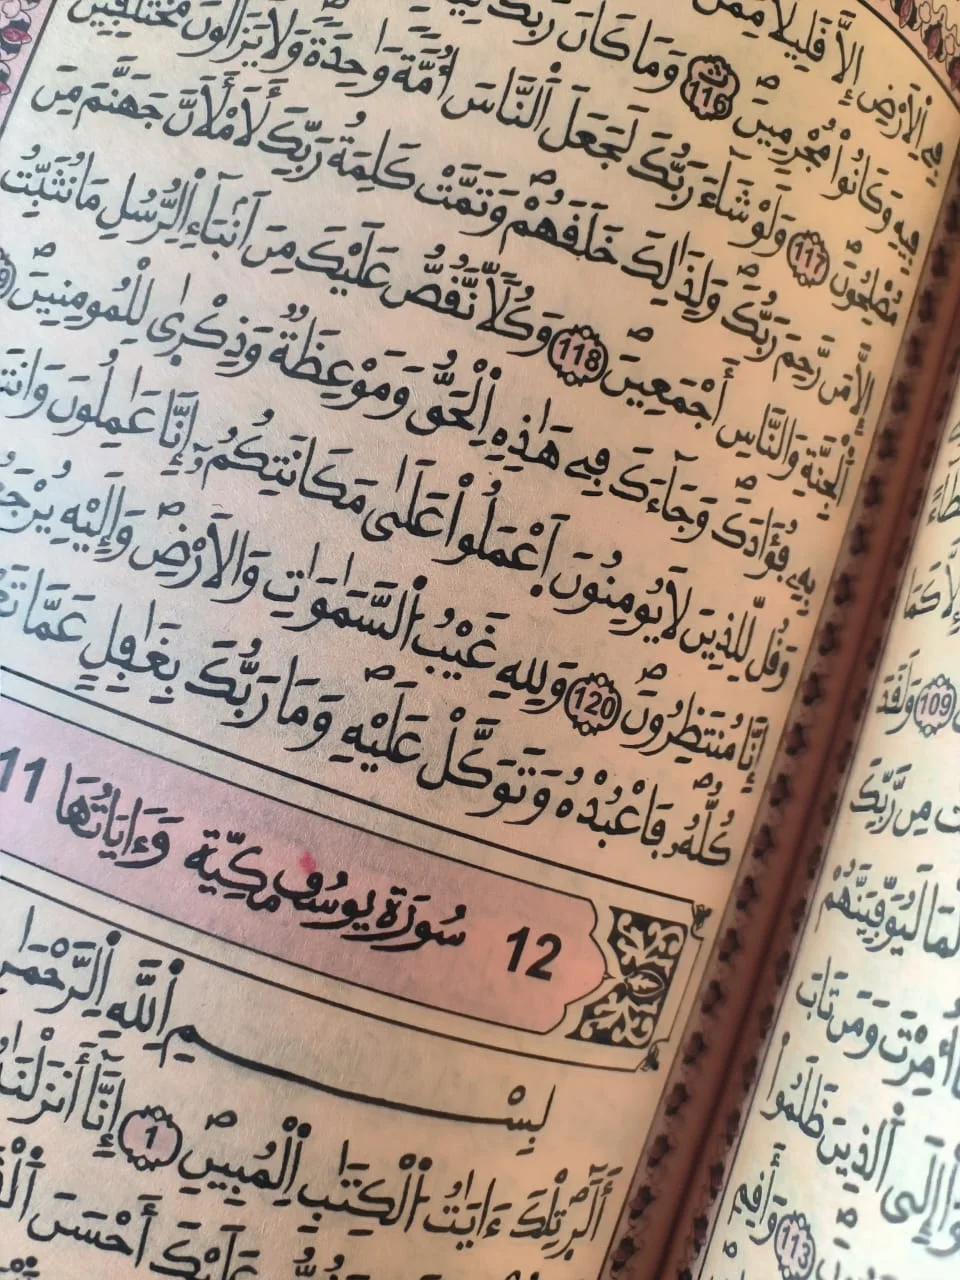 فِي اِلَارْضِ إِلَّا قَلِيلًا مِّمَّنَ
فِيهِ وَكَانُواْ مُجْرِمِينَ 116 وَمَا كَانَ رَبُّكَ
مُصْلِحُونَ 117 وَلَوْ شَآءَ رَبُّكَ لَجَعَلَ اَلنَّاسَ أُمَّةً وَاحِدَةً وَلَا يَزَالُونَ مُخْتَلِفِينَ
إِلَّا مَن رَّحِمَ رَبُّكَ وَلِذَالِكَ خَلَقَهُمْ وَتَمَّتْ كَلِمَةُ رَبِّكَ لَأَمْلَأَنَّ جَهَنَّمَ مِنَ
اَلْجِنَّةِ وَالنَّاسِ أَجْمَعِينَ 118 وَكُلًّا نَّقُصُّ عَلَيْكَ مِنَ اَنۢبَآءِ اِلرُّسُلِ مَا نُثَبِّتُ
بِهِۦ فُؤَادَكَ وَجَآءَكَ فِي هَٰذِهِ اِلْحَقُّ وَمَوْعِظَةٌ وَذِكْرٰى لِلْمُومِنِينَ
وَقُل لِّلذِينَ لَا يُومِنُونَ اَعْمَلُواْ عَلَىٰ مَكَانَتِكُمُۥٓ إِنَّا عَامِلُونَ وَانتَ
إِنَّا مُنتَظِرُونَ 120 وَلِلهِ غَيْبُ اُلسَّمَٰوَٰتِ وَالَارْضِ وَإِلَيْهِ يُرْجَعُ
كُلُّهُۥ فَاعْبُدْهُ وَتَوَكَّلْ عَلَيْهِ وَمَا رَبُّكَ بِغَٰفِلٍ عَمَّا
12 سُورَة يوسُف مَكِيّة وَءايَاتُهَا 11
بِسْمِ اِللَّهِ اِلرَّحْمَٰنِ
أَلَٓرۚ تِلْكَ ءَايَٰتُ اُلْكِتَٰبِ اِلْمُبِينِ 1 إِنَّآ أَنزَلْنَٰهُ
عَلَيْكَ أَحْسَنَ
109 وَلَقَدَ
مِن رَّبِّكَ
لَمَا لَيُوَفِّيَنَّهُمْ
أُمِرْتَ وَمَن تَابَ
إِلَى اَلذِينَ ظَلَمُواْ
113 وَأَقِمِ